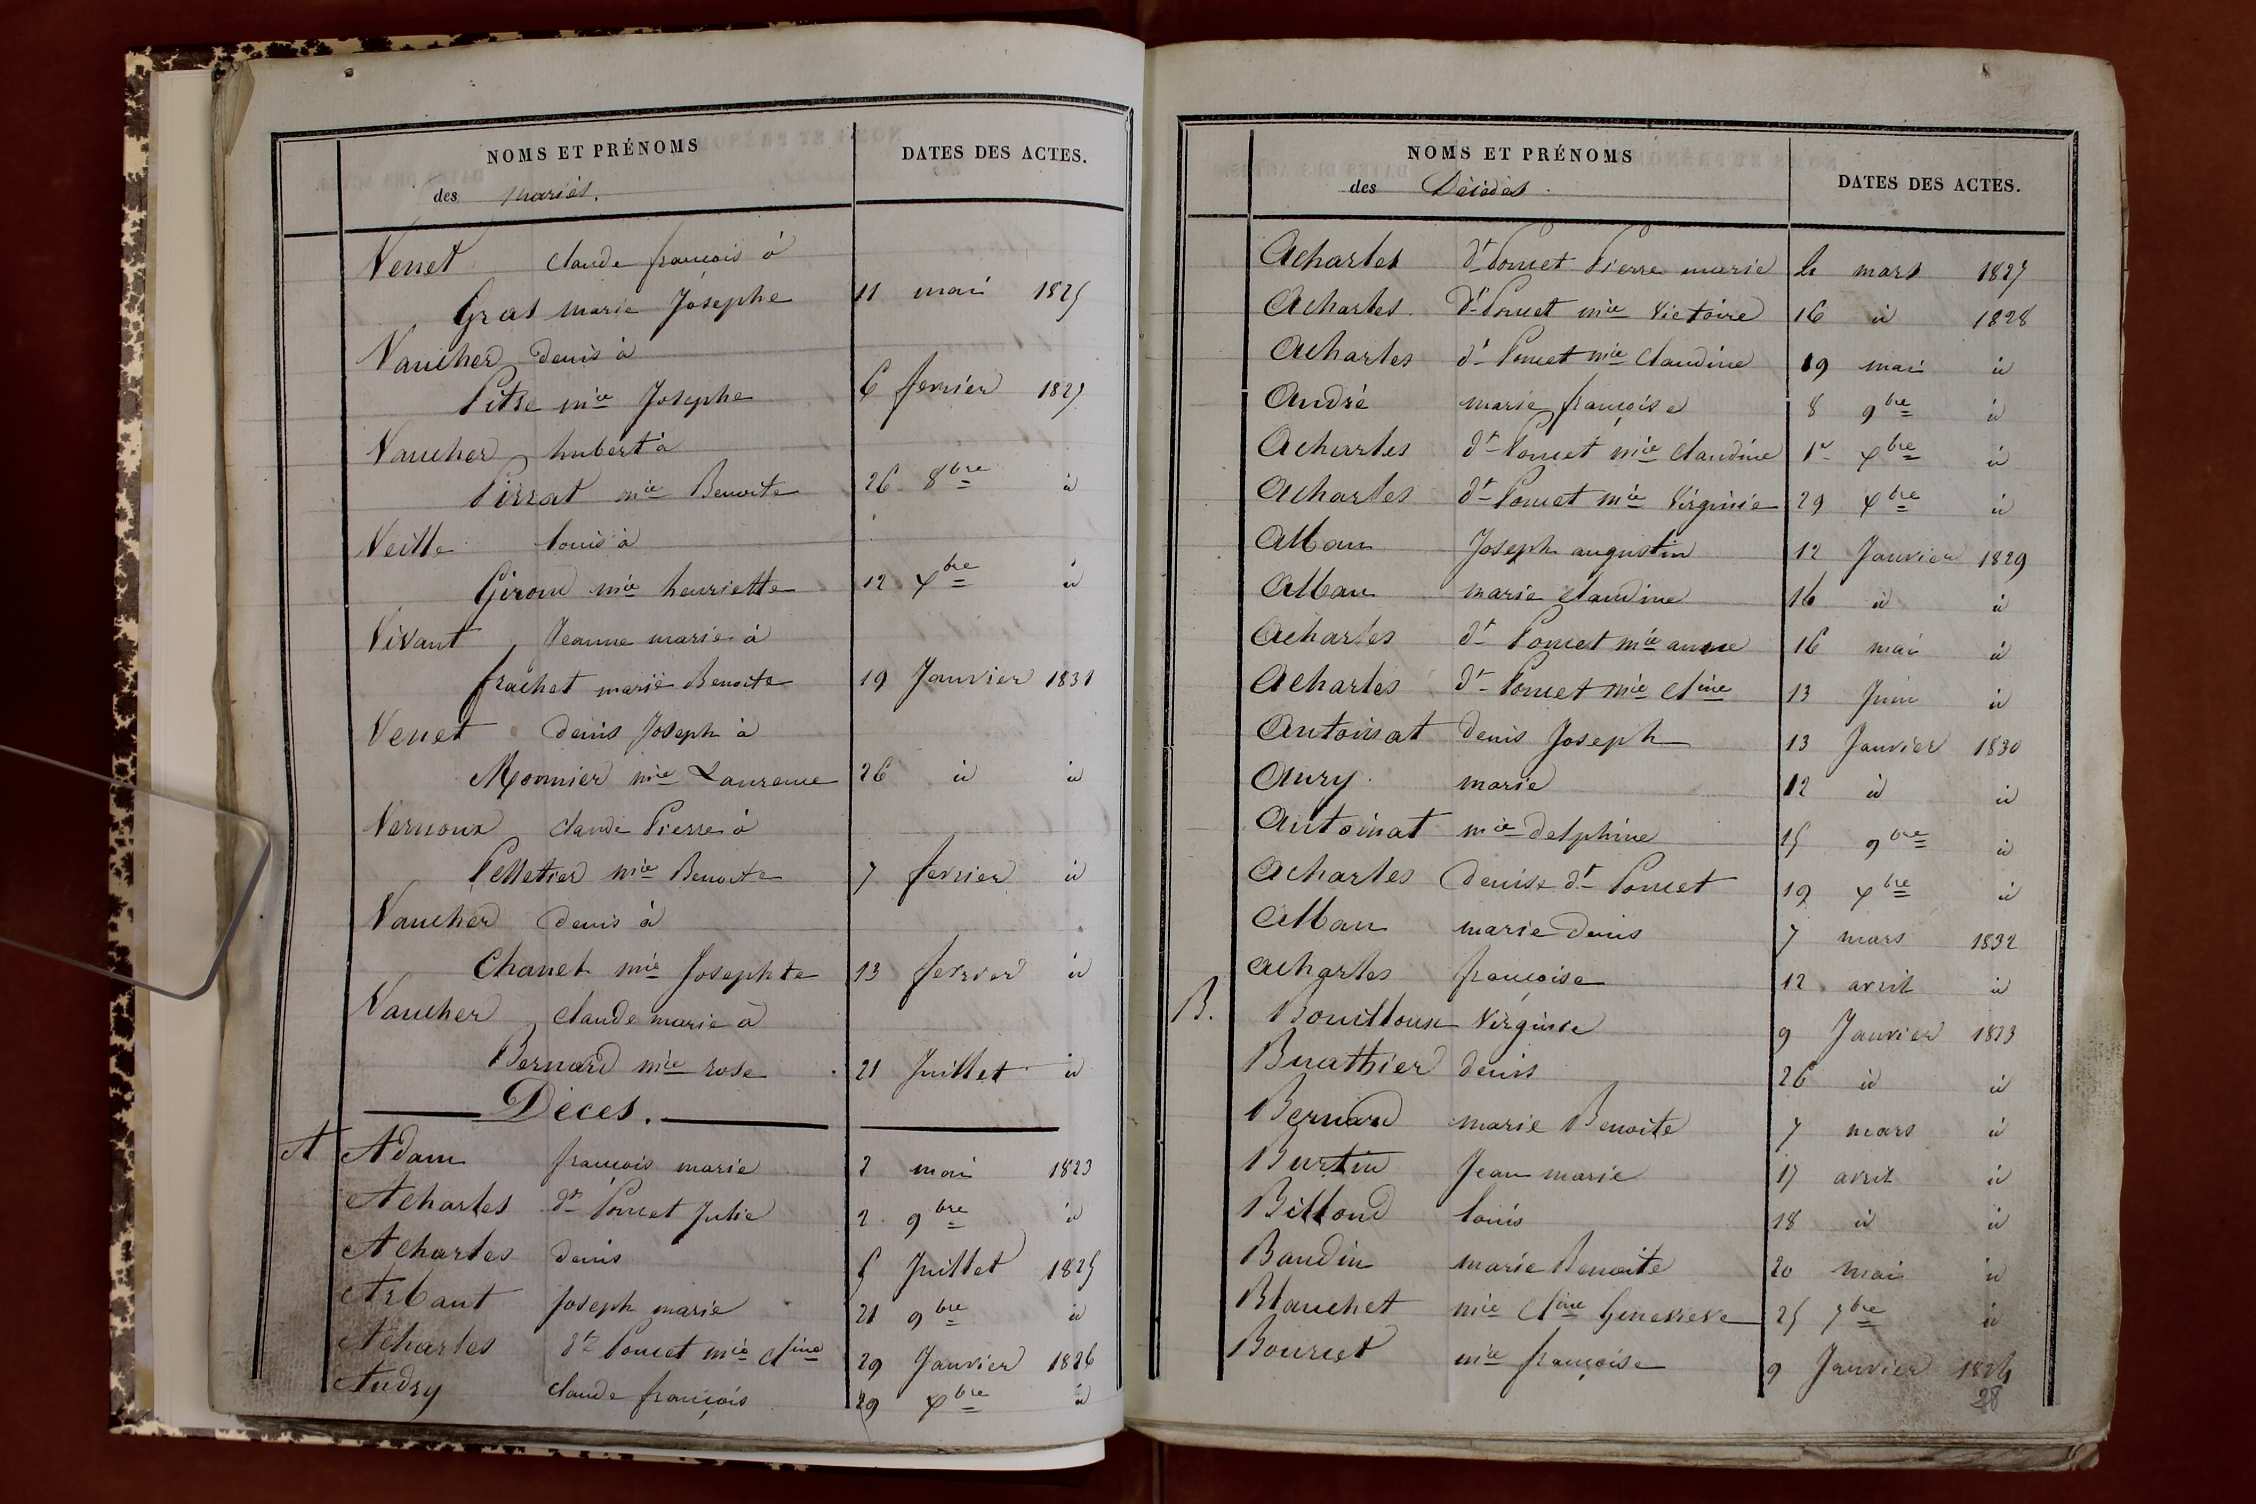 NOMS ET PRÉNOMS DATES DES ACTES.
des mariés.
Venet claude françois à
Gras marie Josephe 11 mai 1825
Vaucher denis à
Pitre mie Josephe 6 fevrier 1827
Vaucher hubert à
Pirrat mie Benoite 26 8bre id
Veille louis à
Giroud mie henriette 12 xbre id
Vivant Jeanne marie à
frachet marie Benoite 19 Janvier 1831
Venet denis Joseph à
Monnier mie Laurence 26 id id
Vernoux claude Pierre à
Pelletier mie Benoite 7 fevrier id
Vaucher denis à
Chanel mie Josephte 13 fevrier id
Vaucher claude marie à
Bernard mie rose 21 Juillet id
Déces.
A Adam françois marie 2 mai 1823
Acharles dt Poncet Julie 2 9bre id
Acharles denis 5 Juillet 1825
Arbant Joseph marie 21 9bre id
Acharles dt Poncet mie cline 29 Janvier 1826
Audry claude françois 29 xbre id
NOMS ET PRÉNOMS
des Décédés. DATES DES ACTES.
Acharles dt Poncet Pierre marie mars 1827
Acharles dt Poncet mie Victoire 16 id 1828
Acharles dt Poncet mie Claudine 19 mai id
André marie françoise 8 9bre id
Acharles dt Poncet mie Claudine 1er xbre id
Acharles dt Poncet mie Virginie 29 xbre id
Alban Joseph augustin 12 Janvier 1829
Alban marie Claudine 16 id id
Acharles dt Poncet mie anne 16 mai id
Acharles dt Poncet mie cline 13 Juin id
Antoinat denis Joseph 13 Janvier 1830
Aury marie 12 id id
Antoinat mie delphine 15 9bre id
Acharles Denise dt Poncet 19 xbre id
Alban marie Denis 7 mars 1832
Acharles françoise 12 avril id
B. Bouilloux Virginie 9 Janvier 1823
Buathier denis 26 id id
Bernard marie Benoite 7 mars id
Burtin Jean marie 17 avril id
Billoud louis 18 id id
Baudin marie Benoite 20 mai id
Blanchet mie cline Genevieve 25 7bre id
Bourcet mie françoise 9 Janvier 1824
28